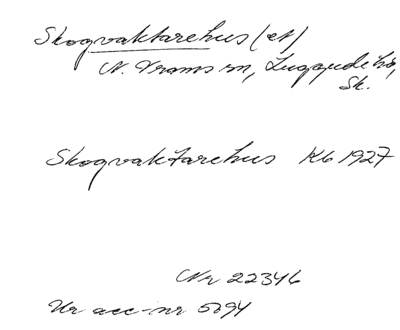 Skogvaktarehus (et)
N. Vrams sn, Luggude hd,
Sk.
Skogvaktarehus Kb 1927
Nr 22346
Ur acc-nr 5094